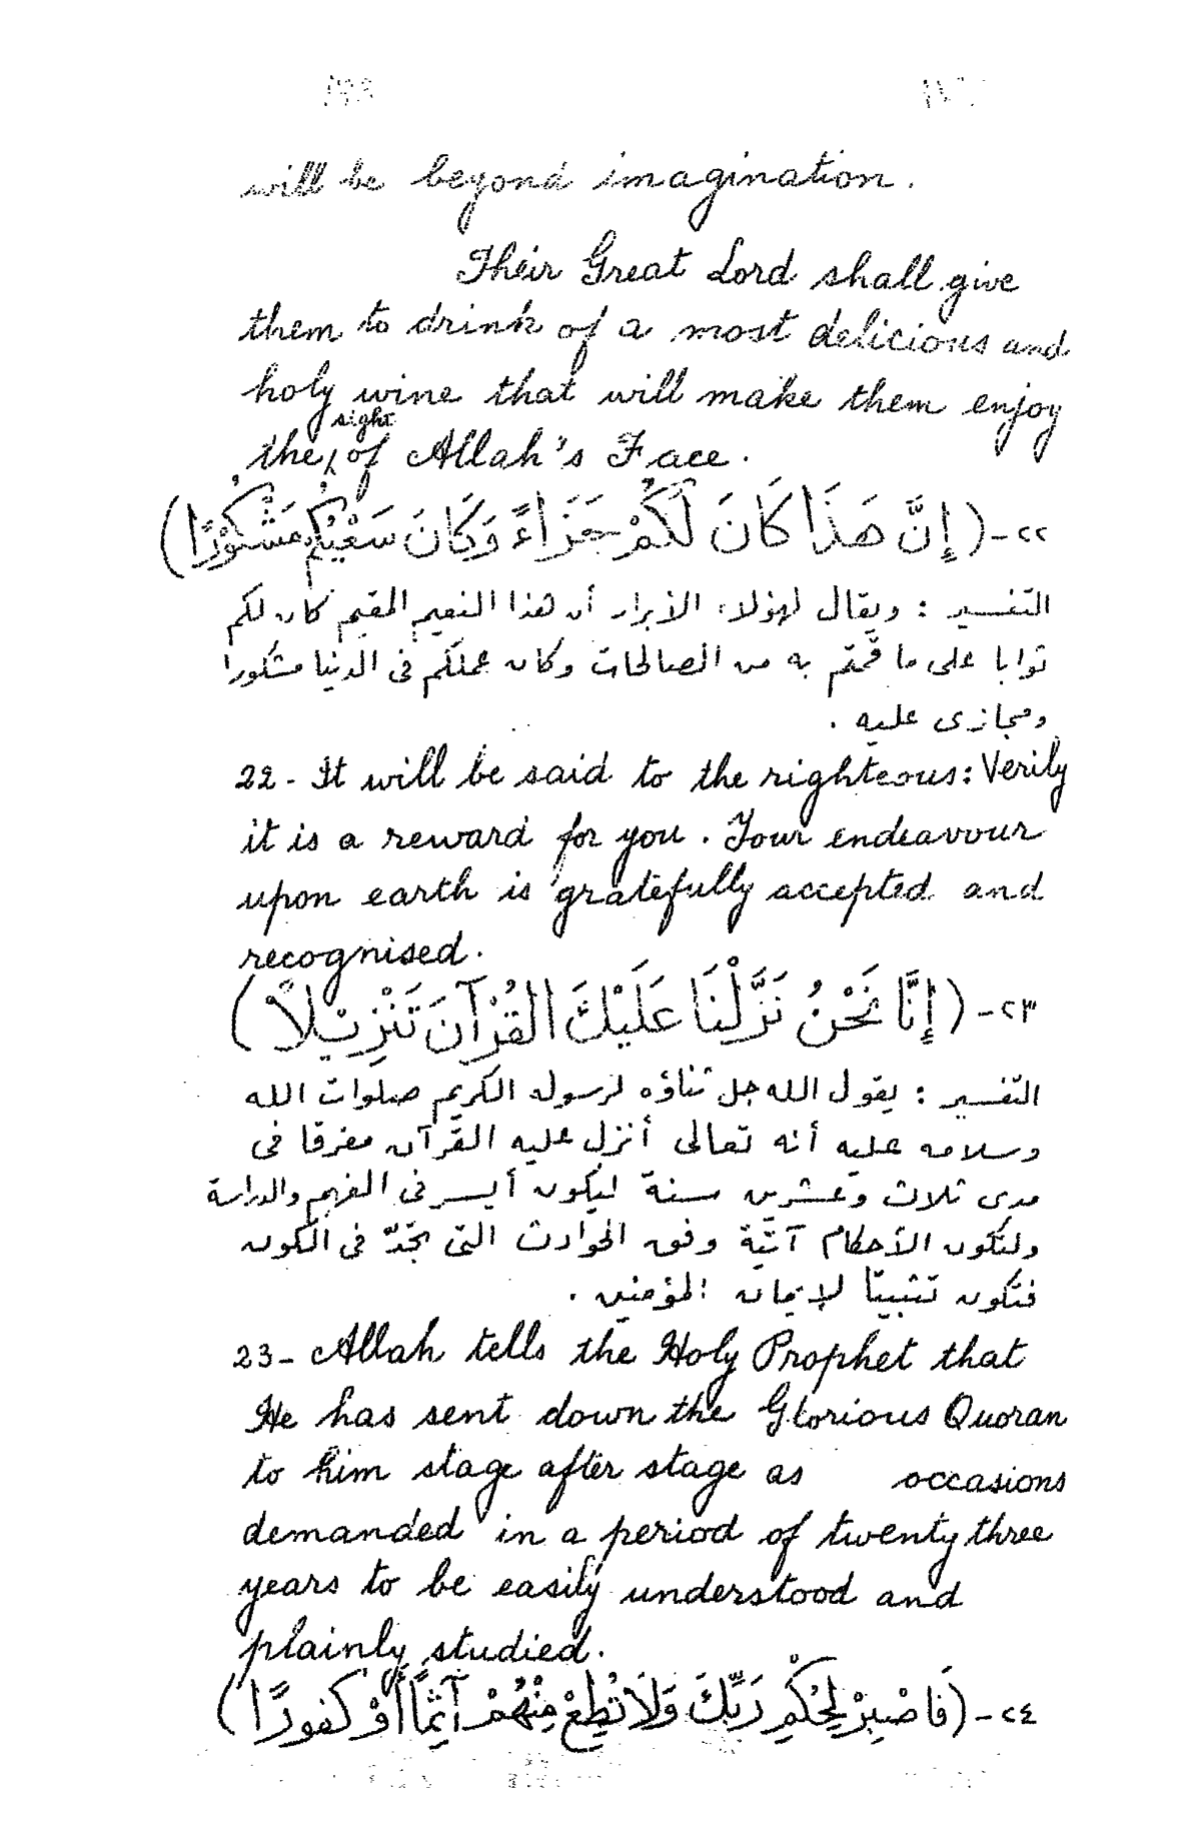 will be beyond imagination.
Their Great Lord shall give
them to drink of a most delicious and
holy wine that will make them enjoy
the sight of Allah's Face.
٢٢-(إِنَّ هَذَا كَانَ لَكُمْ جَزَاءً وَكَانَ سَعْيُكُم مَشْكُوْرًا)
التفسير : ويقال لهؤلاء الأبرار أن هذا النعيم المقيم كان لكم
ثوابا على ما قمتم به من الصالحات وكان عملكم فى الدنيا مشكورا
ومجازى عليه .
22- It will be said to the righteous: Verily
it is a reward for you. Your endeavour
upon earth is gratefully accepted and
recognised.
٢٣-(إِنَّا نَحْنُ نَزَّلْنَا عَلَيْكَ الْقُرْآنَ تَنْزِيْلاً)
التفسير : يقول الله جل ثناؤه لرسوله الكريم صلوات الله
وسلامه عليه أنه تعالى أنزل عليه القرآن مفرقا فى
مدى ثلاث وعشرين سنة ليكون أيسر فى الفهم والدراسة
ولتكون الأحكام آتية وفق الحوادث التى تجدّ فى الكون
فتكون تثبيتا لإيمان المؤمنين .
23- Allah tells the Holy Prophet that
He has sent down the Glorious Quoran
to him stage after stage as occasions
demanded in a period of twenty three
years to be easily understood and
plainly studied.
٢٤-(فَاصْبِرْ لِحُكْمِ رَبِّكَ وَلاَ تُطِعْ مِنْهُمْ آثِمًا أَوْ كَفُورًا)